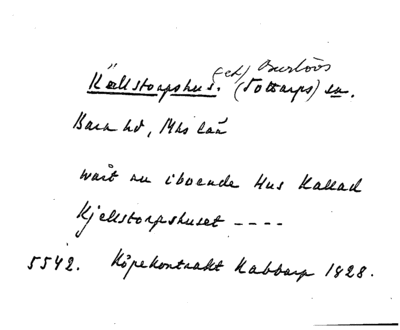 Källstorpshus. (ek) Burlövs
(Tottarps) sn.
Bara hd, Mhs län
vårt nu iboende Hus Kallad
Kjellstorpshuset ----
5542. Köpekontrakt Kabbarp 1828.